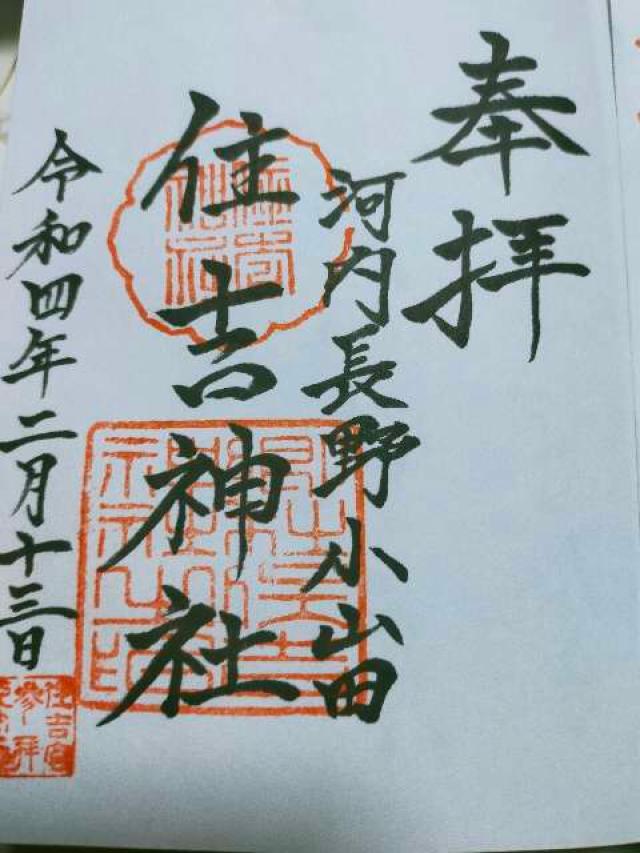 奉拝
河内長野小山田
住吉神社
令和四年二月十三日
住吉宮
参拝